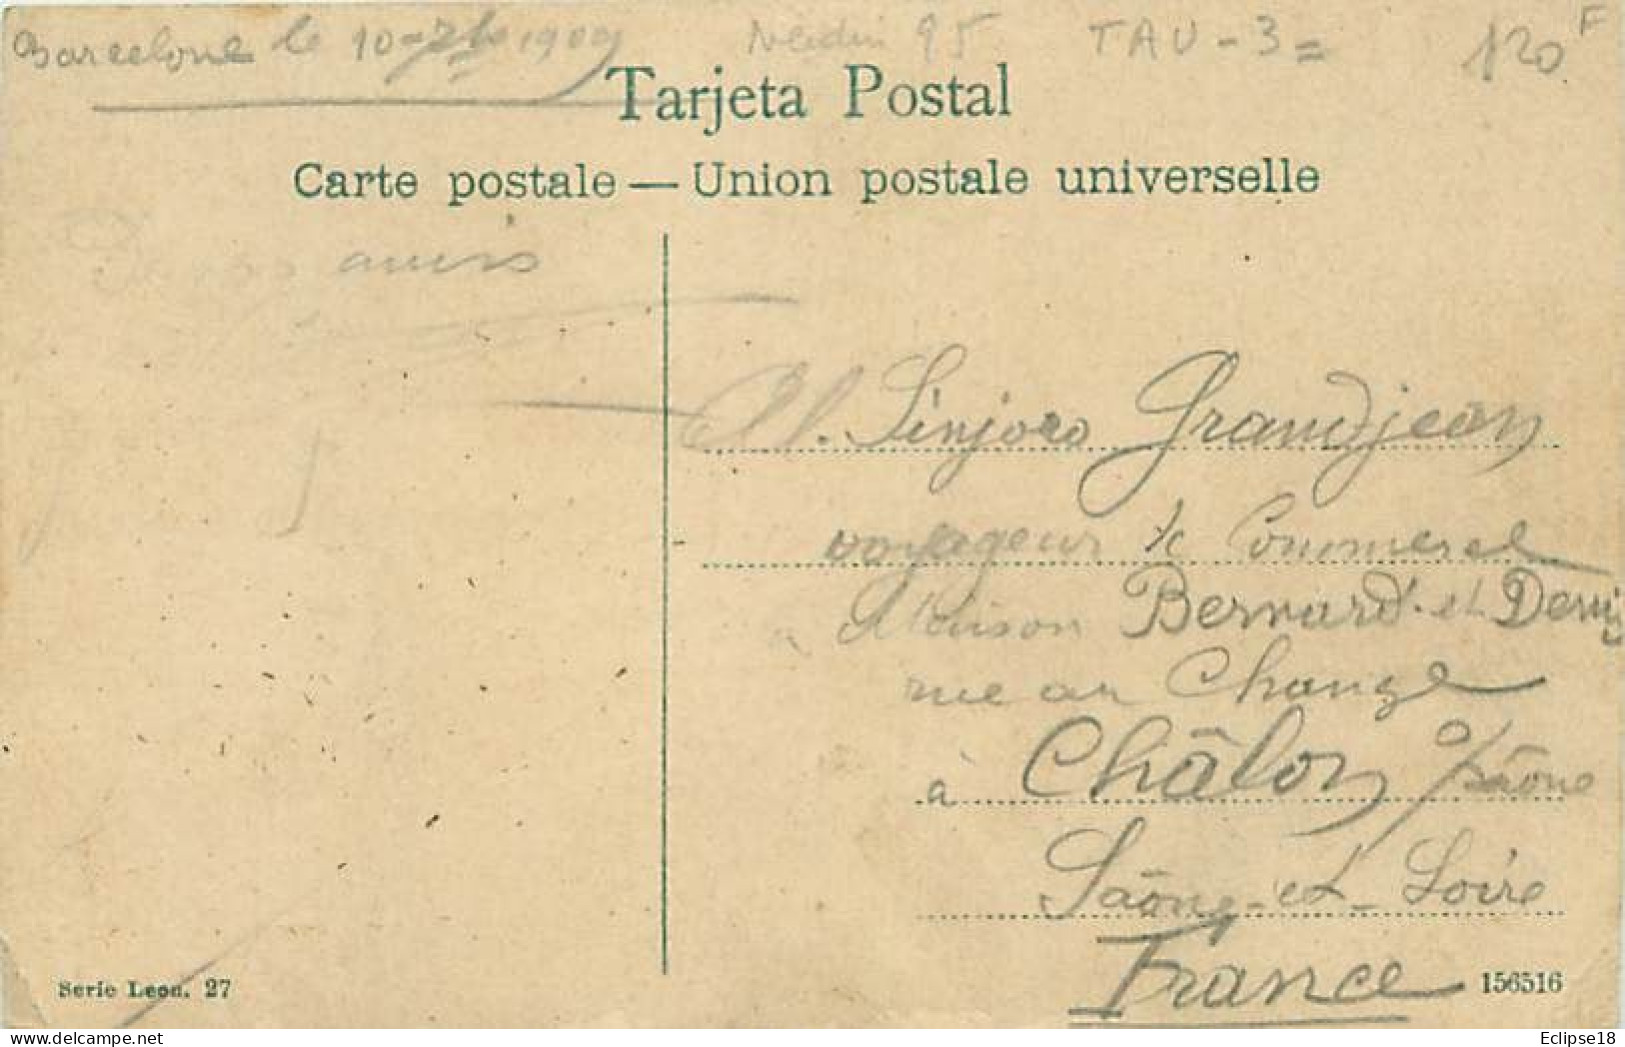 Barcelone le 10-7bre 1909
95 TAU-3=
120F
Tarjeta Postal
Carte postale — Union postale universelle
amis
Al. Sinjoro Grandjean
voyageur de Commerce
Maison Bernard et Denis
rue au Change
à Châlon s/Saône
Saône-et-Loire
France
Serie Leon. 27
156516
www.delcampe.net
Eclipse18